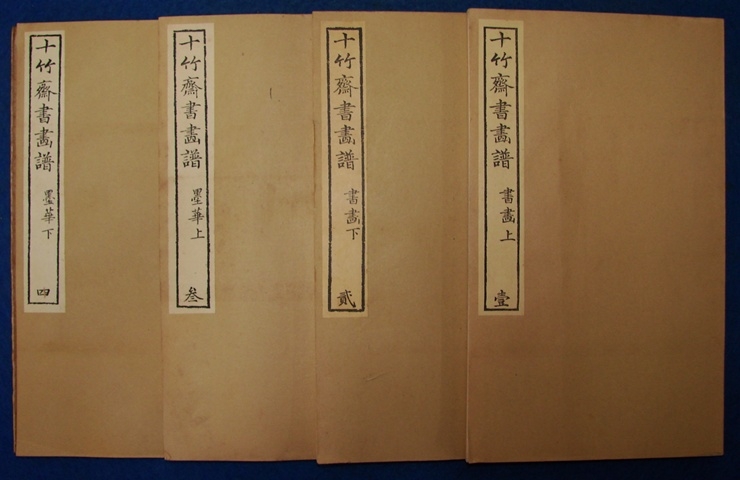 十竹齋書畫譜 書畫上 壹
十竹齋書畫譜 書畫下 貳
十竹齋書畫譜 墨華上 叁
十竹齋書畫譜 墨華下 四